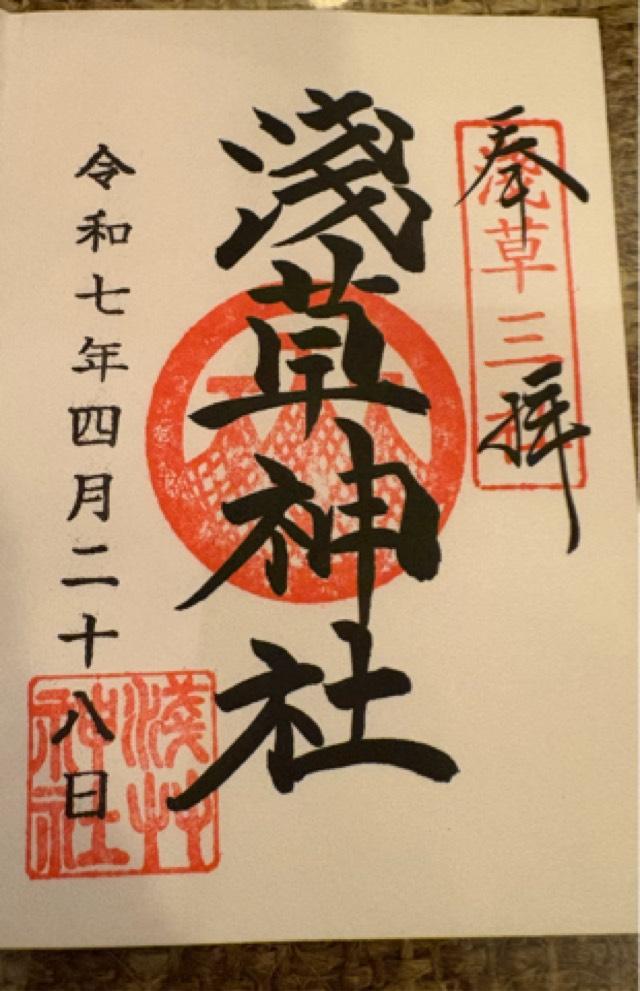 奉拝
浅草三社
淺草神社
令和七年四月二十八日
淺草
神社